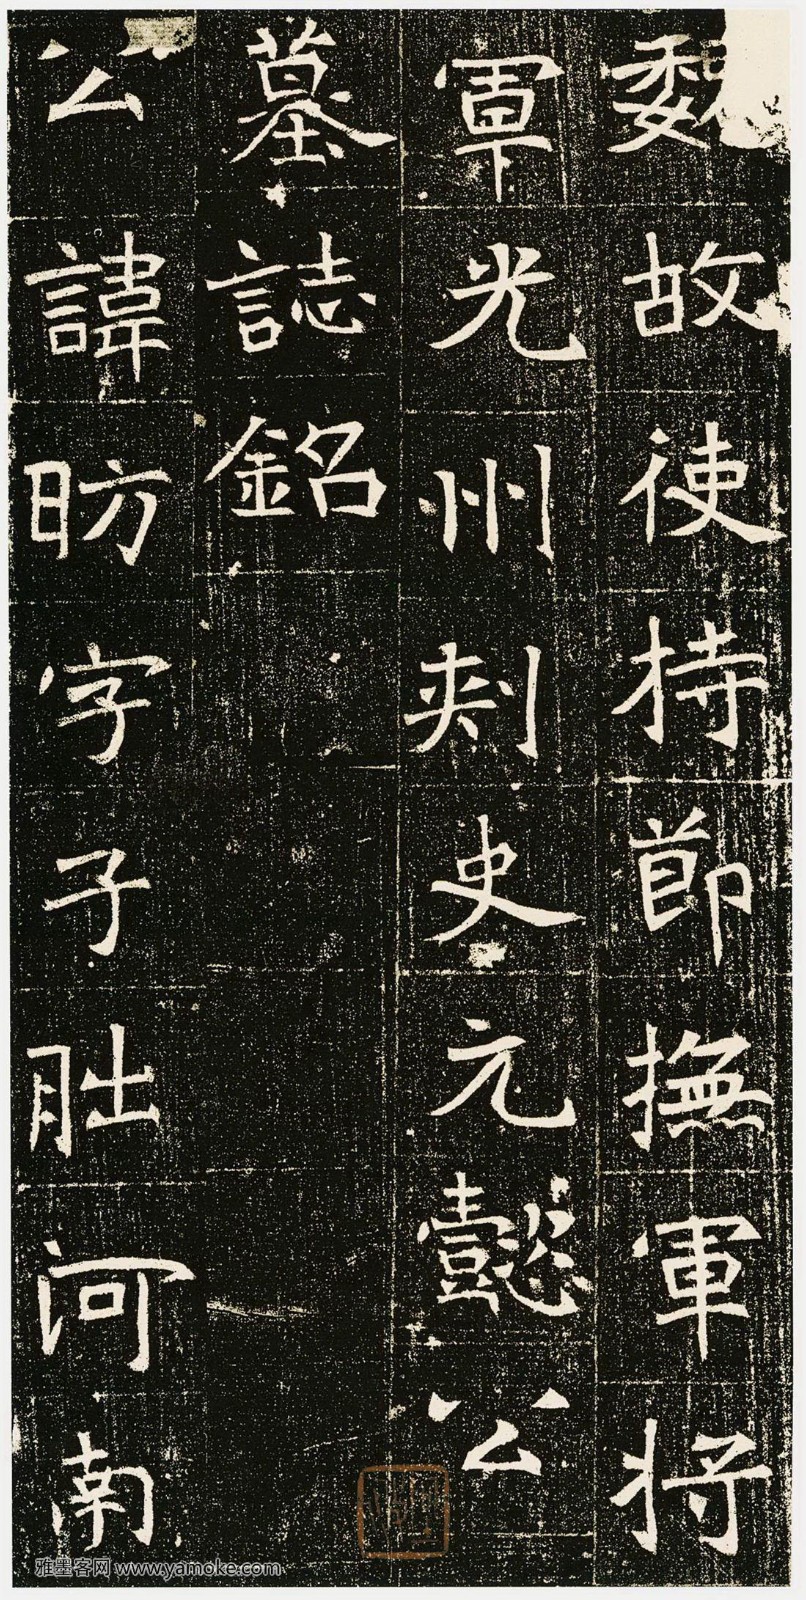 魏故使持節撫軍将
軍光州刺史元懿公
墓誌銘
公諱昉字子朏河南
雅墨客网 www.yamoke.com